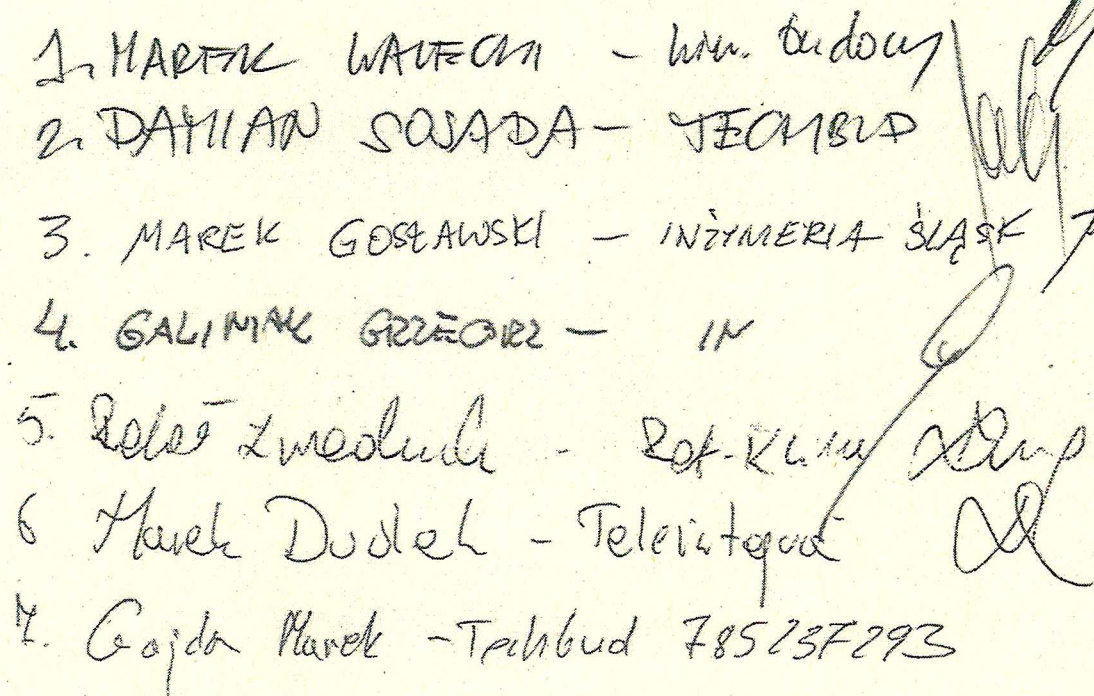 1. MAREK WALECKI - kier. budowy
2. DAMIAN SOJADA - TECHBUD
3. MAREK GOSŁAWSKI - INŻYNIERIA ŚLĄSK
4. GALINIAK GRZEGORZ - IN
5. Rafał - Raf-Klima
6 Marek Dudek - Teleintegra
7. Gajda Marek - Techbud 785237293